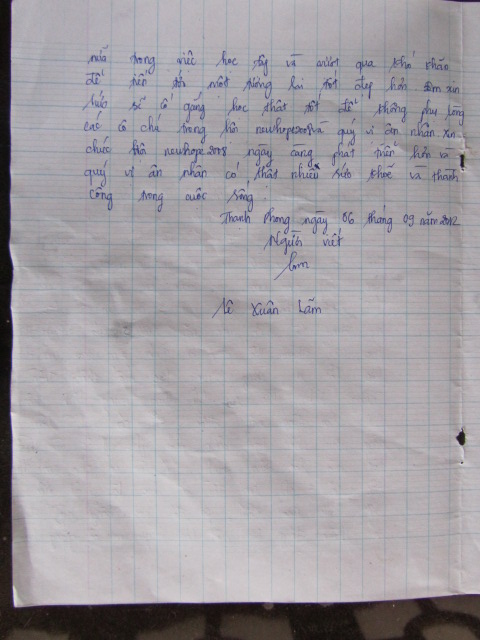 nữa trong việc học tập và vượt qua khó khăn
để tiến tới một tương lai tốt đẹp hơn em xin
hứa sẽ cố gắng học thật tốt để không phụ lòng
các cô chú trong hội newhope2008 và quý vi ân nhân xin
chúc hội newhope2008 ngày càng phát triển hơn và
quý vi ân nhân có thật nhiều sức khỏe và thành
công trong cuộc sống
Thanh Phong ngày 06 tháng 09 năm 2012
Người viết
Lê Xuân Lãm